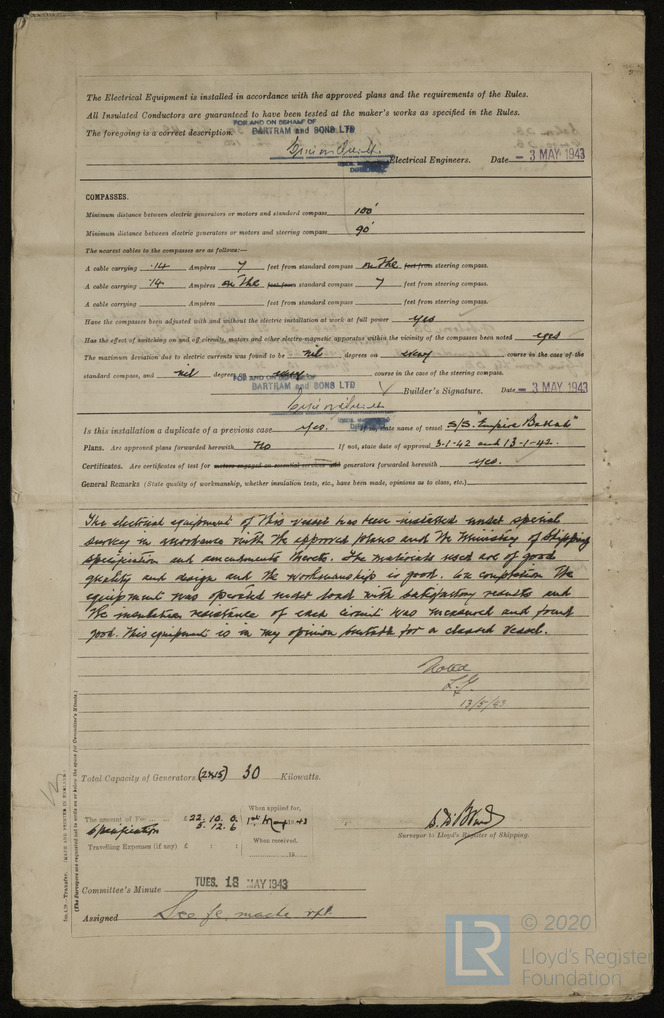 The Electrical Equipment is installed in accordance with the approved plans and the requirements of the Rules.
All Insulated Conductors are guaranteed to have been tested at the maker's works as specified in the Rules.
FOR AND ON BEHALF OF
The foregoing is a correct description. BARTRAM and SONS LTD
Electrical Engineers. Date - 3 MAY 1943
COMPASSES.
Minimum distance between electric generators or motors and standard compass 100'
Minimum distance between electric generators or motors and steering compass 90'
The nearest cables to the compasses are as follows:—
A cable carrying .14 Ampères 7 feet from standard compass on the feet from steering compass.
A cable carrying .14 Ampères on the feet from standard compass 7 feet from steering compass.
A cable carrying Ampères feet from standard compass feet from steering compass.
Have the compasses been adjusted with and without the electric installation at work at full power yes
Has the effect of switching on and off circuits, motors and other electro-magnetic apparatus within the vicinity of the compasses been noted yes
The maximum deviation due to electric currents was found to be nil degrees on every course in the case of the
standard compass, and nil degrees on every course in the case of the steering compass.
FOR AND ON BEHALF OF
BARTRAM and SONS LTD Builder's Signature. Date - 3 MAY 1943
Is this installation a duplicate of a previous case yes. If so, state name of vessel S/S. "Empire
Plans. Are approved plans forwarded herewith No If not, state date of approval 3-1-42 and 13-1-42.
Certificates. Are certificates of test for motors engaged on essential services and generators forwarded herewith yes.
General Remarks (State quality of workmanship, whether insulation tests, etc., have been made, opinions as to class, etc.)
The electrical equipment of this vessel has been installed under special
survey in accordance with the approved plans and the Ministry of Shipping
specification and amendments thereto. The materials used are of good
quality and design and the workmanship is good. On completion the
equipment was operated under load with satisfactory results and
the insulation resistance of each circuit was measured and found
good. This equipment is in my opinion suitable for a classed vessel.
Noted
13/5/43
Total Capacity of Generators (2x15) 30 Kilowatts.
The amount of Fee £ 22.10.0. When applied for,
Specification 5.12.6 1st May 1943
Travelling Expenses (if any) £ : : When received,
19
Surveyor to Lloyd's Register of Shipping.
Committee's Minute TUES. 18 MAY 1943
Assigned See
(The Surveyors are requested not to write on or below the space for Committee's Minute.)
LR © 2020
Lloyd's Register
Foundation